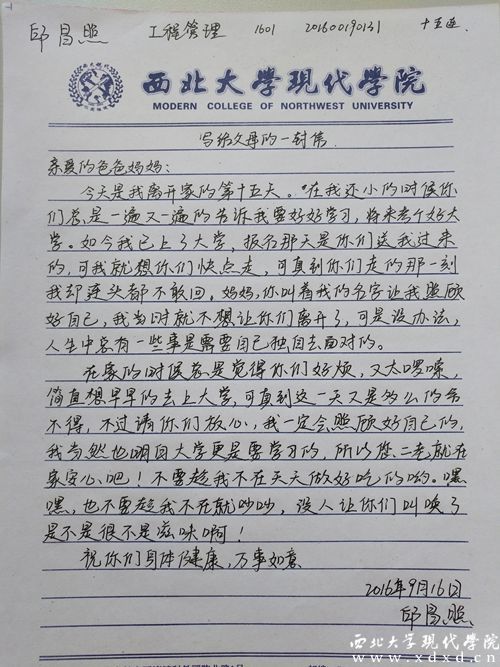 邱昌照 工程管理 1601 201600190131 十五连
西北大學現代學院
MODERN COLLEGE OF NORTHWEST UNIVERSITY
写给父母的一封信
亲爱的爸爸妈妈：
今天是我离开家的第十五天。在我还小的时候你
们总是一遍又一遍的告诉我要好好学习，将来考个好大
学。如今我已上了大学，报名那天是你们送我过来
的，可我就想你们快点走，可真到你们走的那一刻
我却连头都不敢回。妈妈，你叫着我的名字让我照顾
好自己，我当时就不想让你们离开了，可是没办法，
人生中总有一些事是需要自己独自去面对的。
在家的时候总是觉得你们好烦，又太啰嗦，
简直想早早的去上大学，可真到这一天又是多么的舍
不得，不过请你们放心，我一定会照顾好自己的，
我当然也明白大学更是要学习的，所以您二老就在
家安心吧！不要趁我不在天天做好吃的哟。嘿
嘿，也不要趁我不在就吵吵，没人让你们叫唤了
是不是很不是滋味啊！
祝你们身体健康，万事如意
2016年9月16日
邱昌照
西北大学现代学院
www.xdxd.cn